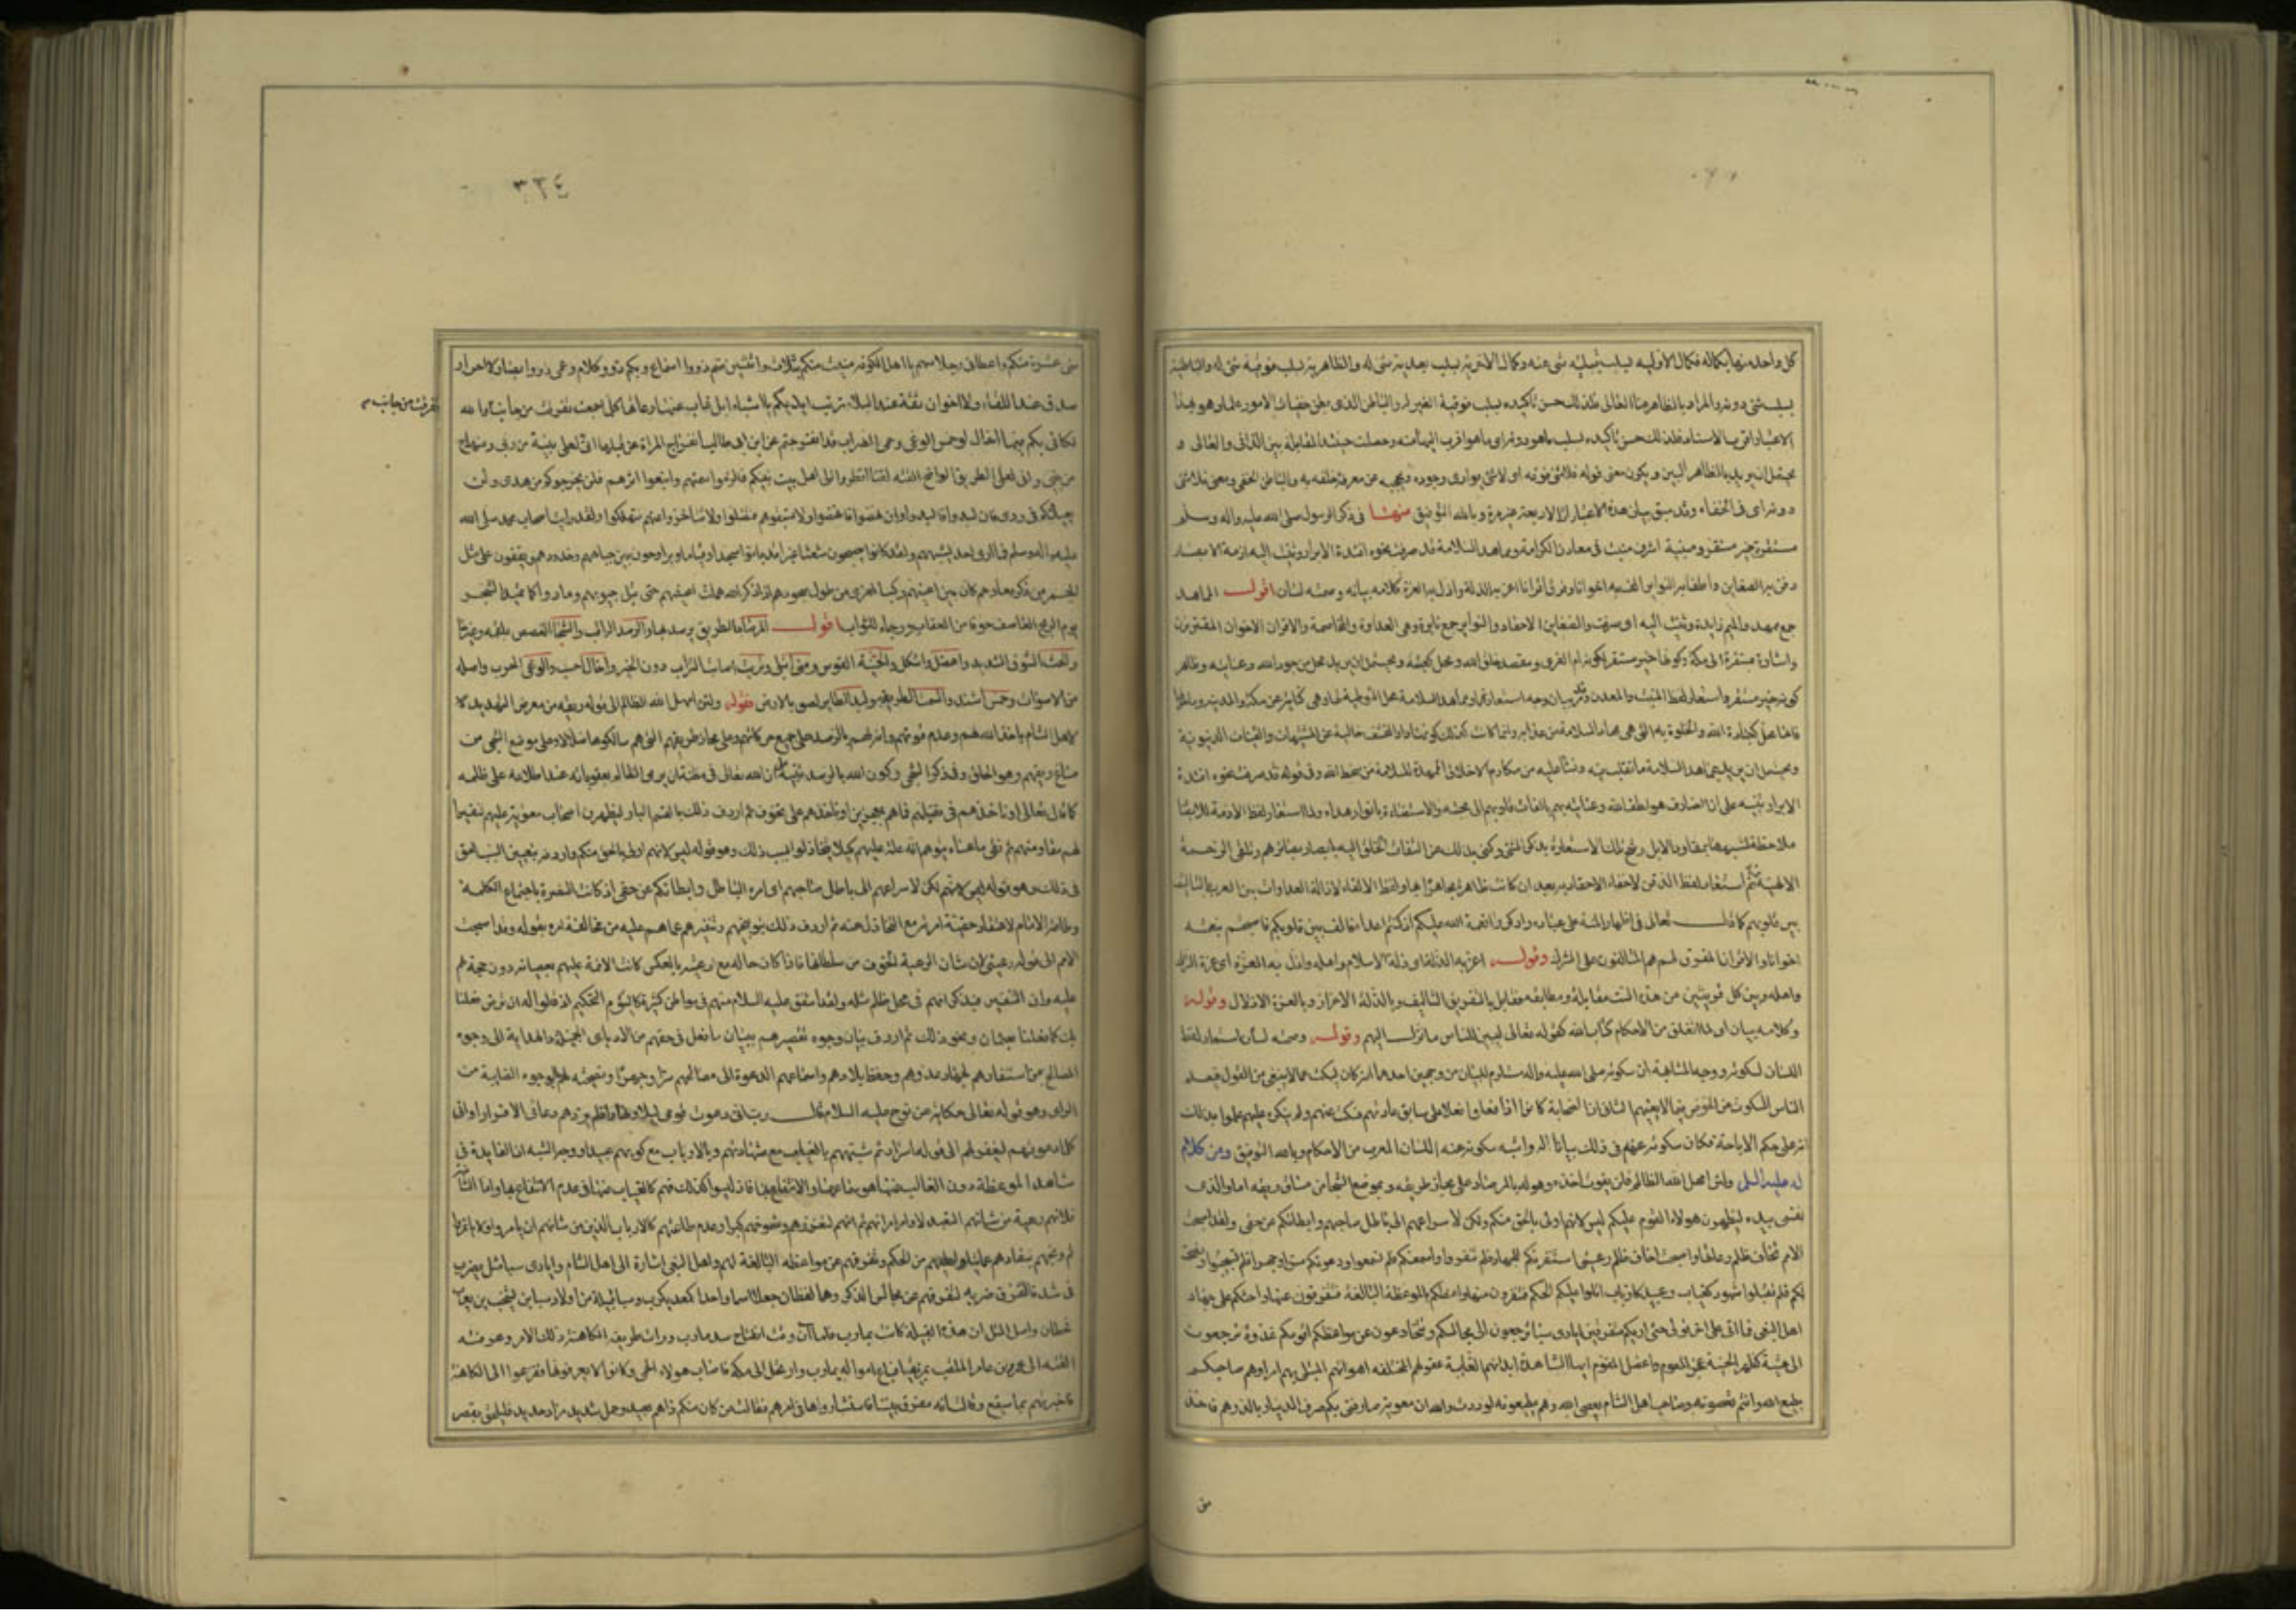 كل واحد منهما بكماله فكمال الاوليه بسلب قبليه شئ عنه وكمال الاخرية بسلب بعدية شئ له والظاهرية بسلب فوقية شئ له والباطنية
بسلب شئ دونه والمراد بالظاهر هنا العالى فلذلك حسن تأكيده بسلب فوقية الغير له والباطن الذى بطن خفيات الامور علما وهو بهذا
الاعتبار اقرب الاشياء فلذلك حسن تأكيده بسلب ما هو دونه اى ما هو اقرب اليها منه وحصلت حينئذ المقابلة بين الدانى والعالى و
يحتمل ان يريد بالظاهر البين ويكون معنى قوله فلا شئ فوقه اى لا شئ يوارى وجوده ويحجبه عن معرفة خلقه به والباطن الخفى ومعنى فلا شئ
دونه اى فى الخفاء وقد سبق بيان هذه الاعتبارات الاربعة وبالله التوفيق منها فى ذكر الرسول صلى الله عليه واله وسلم
مستقره خير مستقر ومنبته اشرف منبت فى معادن الكرامة ومماهد السلامة قد صرفت نحوه افئدة الابرار وثنيت اليه ازمة الابصار
دفن به الضغاين واطفا به النواير الف به اخوانا وفرق به اقرانا اعز به الذلة واذل به العزة كلامه بيان وصمته لسان اقول المماهد
جمع ممهد والميم زايدة وثنيت اليه اى صرفت والضغاين الاحقاد والنواير جمع نايرة وهى العداوة والمخاصمة والاقران الاخوان المقترنون
واشار بمستقره الى مكة وكونها خير مستقر لكونها ام القرى ومقصد خلق الله ومحل كعبته ويحتمل ان يريد محله من جود الله وعنايته وظاهر
كونه خير مستقر واستعار لفظ المنبت والمعدن وقد بين وجه استعارتهما ومماهد السلامة محل التوطئة لها وهى كناية عن مكة والمدينة وما حولها
فانها محل لعبادة الله والخلوة به التى هى مهاد السلامة من عذابه وانما كانت كذلك لكونها دار القشف خالية عن المشتهيات والقينات الدنيوية
ويحتمل ان يريد بمماهد السلامة ما تقلب فيه ونشأ عليه من مكارم الاخلاق الممهدة للسلامة من سخط الله وفى قوله قد صرفت نحوه افئدة
الابرار تنبيه على ان الصارف هو لطف الله وعنايته بهم بالفات قلوبهم الى محبته والاستضاءة بانوار هداه ولما استعار لفظ الازمة للابصار
ملاحظة لشبهها بمقاود الابل رشح تلك الاستعارة بذكر الثنى وكنى بذلك عن التفات الخلق اليه بابصار بصائرهم وتلقى الرحمة
الالهية منه ثم استعار لفظ الدفن لاخفاء الاحقاد به بعد ان كانت ظاهرة مجاهرا بها ولفظ الاطفاء لازالة العداوات بين العرب بالتأليف
بين قلوبهم كما قال تعالى فى اظهار المنة على عباده واذكروا نعمة الله عليكم اذ كنتم اعداء فالف بين قلوبكم فاصبحتم بنعمته
اخوانا والاقران المفرق لهم هم المتألفون على الشرك وقوله اعز به الذلة اى ذلة الاسلام واهله واذل به العزة اى عزة الشرك
واهله وبين كل قرينتين من هذه الست مقابلة ومطابقة فقابل بالتفريق التاليف وبالذلة الاعزاز وبالعزة الاذلال وقوله
وكلامه بيان اى لما انغلق من الاحكام كتاب الله كقوله تعالى ليبين للناس ما نزل اليهم وقوله وصمته لسان استعار لفظ
اللسان لسكوته ووجه المشابهة ان سكوته صلى الله عليه واله مستلزم للبيان من وجهين احدهما انه كان يسكت عما لا ينبغى من القول فيعلم
الناس السكوت عن الخوض فيما لا يعنيهم الثانى ان الصحابة كانوا اذا فعلوا فعلا على سابق عادتهم فسكت عنهم ولم ينكره عليهم علموا بذلك
انه على حكم الاباحة فكان سكوته عنهم فى ذلك بيانا له واشبه سكوته عنه اللسان المعرب عن الاحكام وبالله التوفيق ومن كلام
له عليه السلم ولئن امهل الله الظالم فلن يفوت اخذه وهو له بالمرصاد على مجاز طريقه وبموضع الشجا من مساغ ريقه اما والذى
نفسى بيده ليظهرن هؤلاء القوم عليكم ليس لانهم اولى بالحق منكم ولكن لاسراعهم الى باطل صاحبهم وابطائكم عن حقى ولقد اصبحت
الامم تخاف ظلم رعاتها واصبحت اخاف ظلم رعيتى استنفرتكم للجهاد فلم تنفروا واسمعتكم فلم تسمعوا ودعوتكم سرا وجهرا فلم تستجيبوا ونصحت
لكم فلم تقبلوا شهود كغياب وعبيد كارباب اتلوا عليكم الحكم فتنفرون منها واعظكم بالموعظة البالغة فتتفرقون عنها واحثكم على جهاد
اهل البغى فما اتى على اخر قولى حتى اريكم متفرقين ايادى سبا ترجعون الى مجالسكم وتتخادعون عن مواعظكم اقومكم غدوة وترجعون
الى عشية كظهر الحنية عجز المقوم واعضل المقوم ايها الشاهدة ابدانهم الغايبة عقولهم المختلفة اهواؤهم المبتلى بهم امراؤهم صاحبكم
يطيع الله وانتم تعصونه وصاحب اهل الشام يعصى الله وهم يطيعونه لوددت والله ان معوية صارفنى بكم صرف الدينار بالدرهم فاخذ
من
٣٢٤
منى عشرة منكم واعطانى رجلا منهم يا اهل الكوفة منيت منكم بثلاث واثنتين صم ذووا اسماع وبكم ذوو كلام وعمى ذووا ابصار لا احرار
صدق عند اللقاء ولا اخوان ثقة عند البلاء تربت ايديكم يا اشباه ابل غاب عنها رعاتها كلما جمعت من جانب تفرقت من جانب اخر والله
تفرقت من جانب
لكانى بكم فيما اخال لو حمس الوغى وحمى الضراب قد انفرجتم عن ابن ابى طالب انفراج المراة عن قبلها انى لعلى بينة من ربى ومنهاج
من نبيى وانى لعلى الطريق الواضح القطه لقطا انظروا الى اهل بيت نبيكم فالزموا سمتهم واتبعوا اثرهم فلن يخرجوكم من هدى ولن
يعيدوكم فى ردى فان لبدوا فالبدوا وان نهضوا فانهضوا ولا تسبقوهم فتضلوا ولا تتأخروا عنهم فتهلكوا ولقد رايت اصحاب محمد صلى الله
عليه واله وسلم فما ارى احدا يشبههم ولقد كانوا يصبحون شعثا غبرا قد باتوا سجدا وقياما ويراوحون بين جباههم وخدودهم ويقفون على مثل
الجمر من ذكر معادهم كان بين اعينهم ركب المعزى من طول سجودهم اذا ذكر الله هملت اعينهم حتى تبل جيوبهم ومادوا كما يميد الشجر
يوم الريح العاصف خوفا من العقاب ورجاء للثواب اقول المرصاد الطريق يرصد بها والرصد الراقب والشجا الغصص بلقمة وغيرها
والحث السوق الشديد واعضل واشكل والحنية القوس ومنى ابتلى وتربت اصابت التراب دون الخير واخال احسب والوغى الحرب واصله
من الاصوات وحمس اشتد والسمت الطريقة ولبد الطاير لصق بالارض فقوله ولئن امهل الله الظالم الى قوله ريقه من معرض التهديد
لاهل الشام باخذ الله لهم وعدم فوتهم وانه لهم بالرصد على جميع حركاتهم وعلى مجاز طريقهم التى هم سالكوها وعلى موضع الشجى من
مساغ ريقهم وهو الحلق وفى ذكر الشجى وكون الله بالرصد تنبيه على ان الله تعالى فى مظنة ان يرمى الظالم بعقوباته عند اطلاعه على ظلمه
كما قال تعالى او ياخذهم فى تقلبهم فما هم بمعجزين او ياخذهم على تخوف ثم اردف ذلك بالقسم البار ليظهرن اصحاب معوية عليهم تنفيرا
لهم مقاومتهم ثم نفى ما عساه يتوهم انه علة عليهم كيلا يتخاذلوا بسبب ذلك وهو قوله ليس لانهم اولى بالحق منكم واردفه بتعيين السبب الحق
فى ذلك وهو قوله لكن لاسراعهم الى باطل صاحبهم اى امره الباطل وابطائكم عن حقى اذ كانت النصرة باجتماع الكلمة
وطاعة الامام لا اعتقاد حقية امره مع التخاذل عنه ثم اردف ذلك بتوبيخهم وتنفيرهم عما هم عليه من مخالفة امره بقوله ولقد اصبحت
الامم الى قوله رعيتى لان شان الرعية الخوف من سلطانها فاذا كان حاله مع رعيته بالعكس كانت اللائمة عليهم بعصيانه دون حجة لهم
عليه وان التفت فيه ذكر انهم فى محل ظلم مثله ولقد اشفق عليه السلام منهم فى مواطن كثيرة كاليوم التحكيم اذ قالوا له ان لم ترض فعلنا
بك كما فعلنا بعثمان ونحو ذلك ثم اردف بيان وجوه تقصيرهم ببيان ما فعل فى حقهم من الايادى الجميلة والهداية الى وجوه
المصالح من استنفارهم لجهاد عدوهم وحفظ بلادهم واسماعهم الدعوة الى مصالحهم سرا وجهرا ونصيحته لهم بالوجوه الصايبة من
الراى وهو كقوله تعالى حكاية عن نوح عليه السلام قال رب انى دعوت قومى ليلا ونهارا فلم يزدهم دعائى الا فرارا وانى
كلما دعوتهم لتغفر لهم الى قوله اسرارا ثم شبههم بالغياب مع شهادتهم وبالارباب مع كونهم عبيدا ووجه الشبه ان الفايدة فى
شاهد الموعظة دون الغائب عنها هو سماعها والانتفاع بها فاذ ليسوا كذلك فهم كالغياب عنها فى عدم الانتفاع بها واما الثانى
فلانهم رعية من شانهم التعبد لاوامر امرائهم ثم انهم لتعززهم وشموخهم كبرا وعدم طاعتهم كالارباب الذين من شانهم ان يامروا ولا ياتمروا
ثم وبخهم بنفارهم عما يتلوا عليهم من الحكم وتفرقهم عن مواعظه البالغة لهم واهل البغى اشارة الى اهل الشام وايادى سبا مثل يضرب
فى شدة التفرق ضربه لتفرقهم عن مجالس الذكر وهما لفظان جعلا اسما واحدا كمعديكرب وسبا قبيلة من اولاد سبا بن يشجب بن يعرب
قحطان واصل المثل ان هذه القبيلة كانت بمأرب فلما آن وقت انفتاح سد مأرب ورات طريفة الكاهنة ذلك الامر وعرفته
القته الى عمرو بن عامر الملقب بمزيقيا فباع امواله بمأرب وارتحل الى مكة فاصاب هؤلاء الحمى وكانوا لا يعرفونها ففزعوا الى الكاهنة
فاخبرتهم بما سيقع وقالت انه مفرق بيننا فاستشاروها فى امرهم فقالت من كان منكم ذاهم بعيد وحمل شديد ومزاد جديد فليلحق بقصر